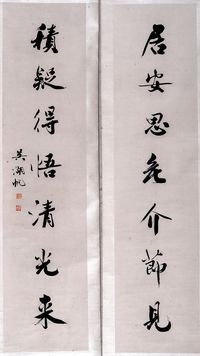 居安思危介節見
積疑得悟清光来
吳湖帆